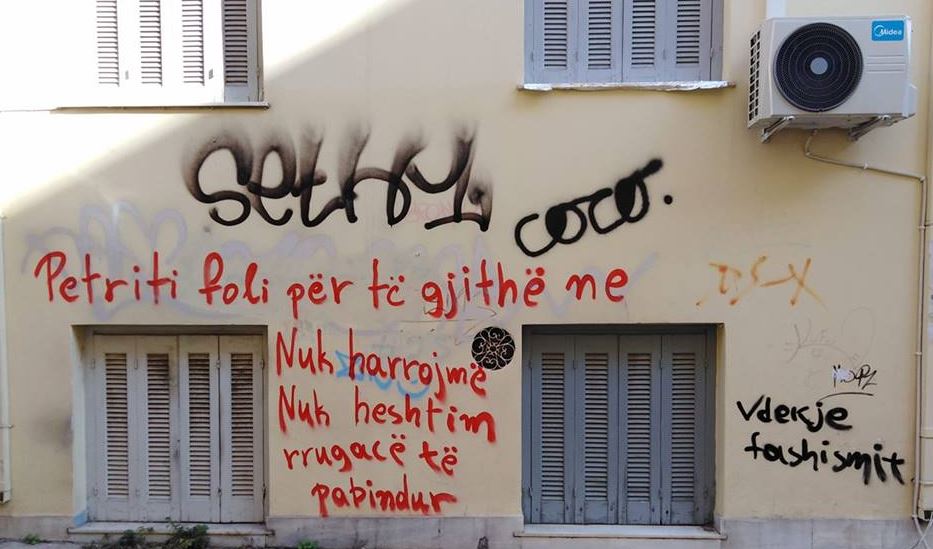 Midea
sethy
coco.
Petriti foli për të gjithë ne
Nuk harrojmë
Nuk heshtim
rrugacë të
pabindur
Vdekje
fashismit